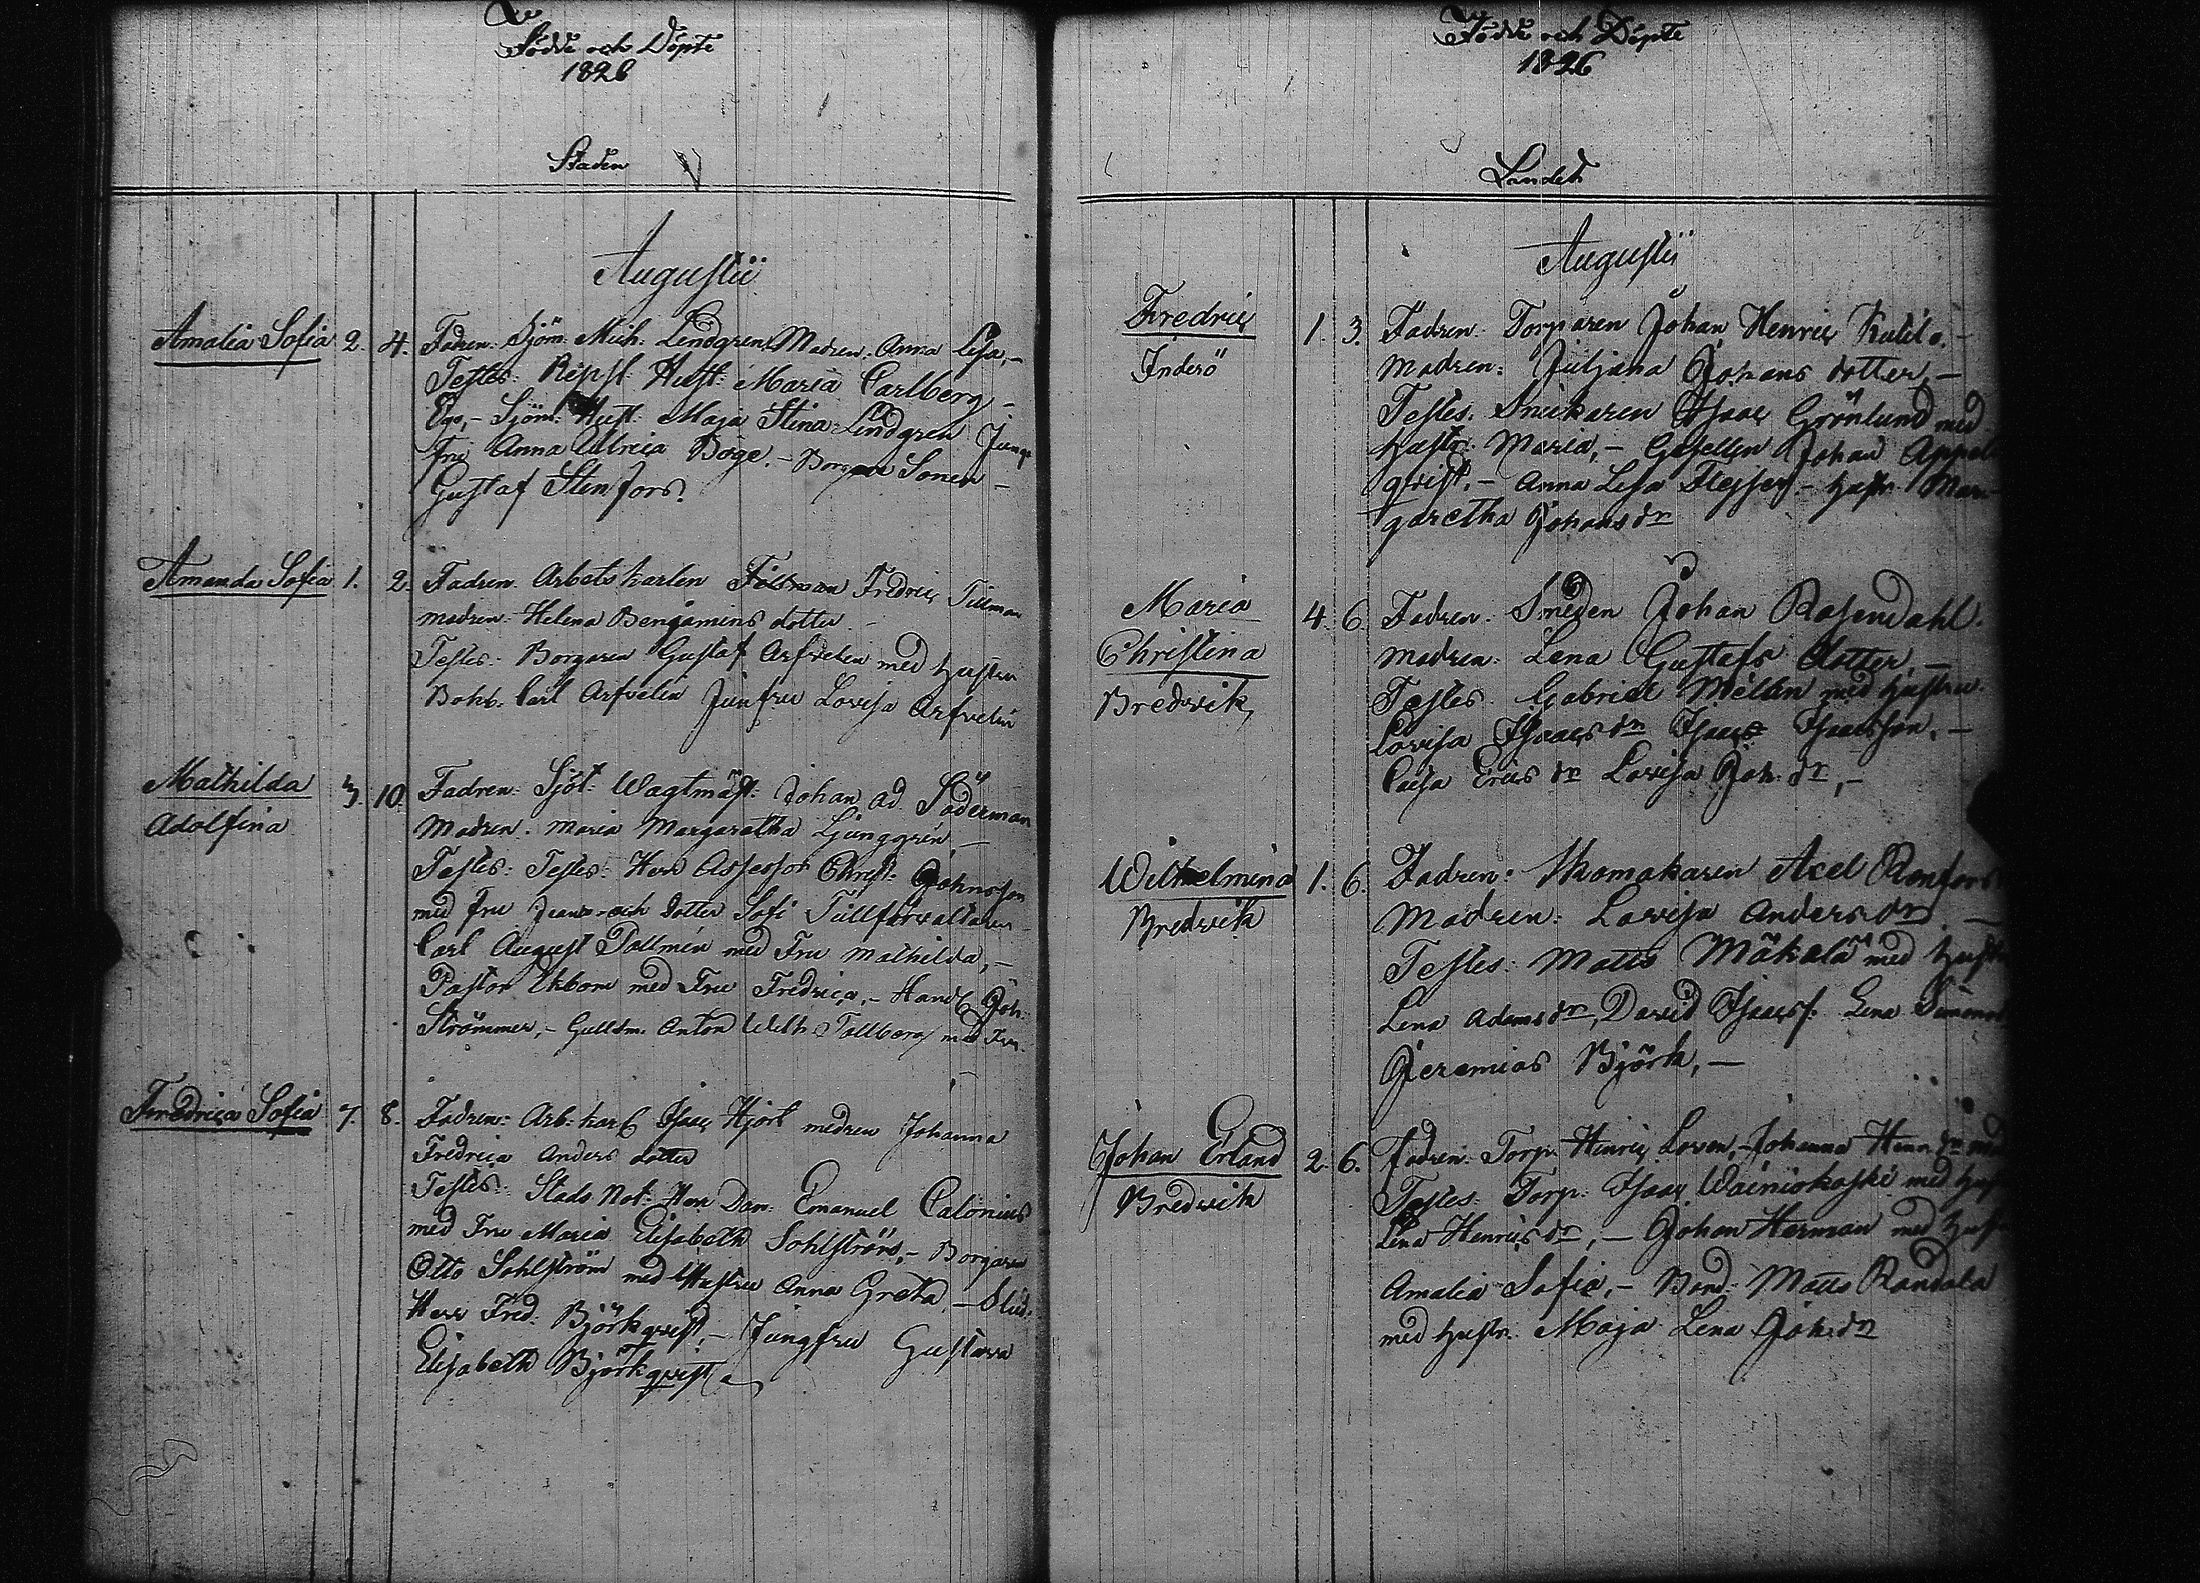 Födde och Döpte
1826
Staden
Augustii
Amalia Sofia 2. 4. Fadren: Sjöm. Mich. Lindgren, Madren. Anna Lisa, –
Testes: Repsl. Hust: Maria Carlberg –
Sjöm: Hust: Maja Stina Lindgren Jung-
fru Anna Ulrica Böge. – Borgare Sonen –
Gustaf Stenfors.
Amanda Sofia 1. 2. Fadren. Arbetskarlen Fredric Tillman
madren. Helena Benjamins dotter –
Testes: Borgaren Gustaf Arfvelin med hustru
Bohb. Carl Arfvelin Junfru Lovisa Arfvelin
Mathilda
Adolfina
3. 10. Fadren: Sjöt: Wagtmäst: Johan Ad. Söderman
Madren. Maria Margaretha Ljunggrén –
Testes: Testes: Herr Assessor Christ: Johnsson
med fru och dotter Sofi Tullförvaltaren
Carl August Tallmén med Fru Mathilda, –
Pastor Ekbom med Fru Fredrica, – Handl Joh:
Strömmer, – Gulldsm. Anton Wilh. Tallberg med Fru.
Fredrica Sofia 7. 8. Fadren: Arb: karl Isaac Hjort madren Johanna
Fredrica Anders dotter
Testes: Stads Not: Herr Dan: Emanuel Calonius
med Fru Maria Elisabeth Sohlström, – Borgaren
Otto Sohlström med Hustru Anna Greta, – Stud:
Herr Fred: Björkqvist, – Jungfru Gustava
Elisabeth Björkqvist
Födde och Döpte
1826
Landet
Augustii
Fredric
Inderö
1. 3. Fadren: Torparen Johan Henric Kulila. –
Madren: Juljana Johans dotter, –
Testes. Snickaren Isaac Grönlund med
hustr: Maria, – Gesellen Johan Appel
qvist, – Anna Lisa – hustr Mar-
garetha Johans dr
Maria
Christina
Bredvik
4. 6. Fadren: Smeden Johan Rosendahl.
Madren: Lena Gustafs dotter, –
Testes. Gabriel Mélén med hustru.
Lovisa Isaacs dr Isaac Isaacsson, –
Caisa Erics dr Lovisa Joh. dr, –
Wilhelmina
Bredvik
1. 6. Fadren: Skomakaren Axel Ranfors
Madren: Lovisa Anders dr –
Testes: Matts Mäkalä med hustr
Lena Adams dr, David Isacss. Lena
Jeremias Björk, –
Johan Erland
Bredvik
2. 6. Fadren: Torp. Henric Loven, – Johanna Henr. dr
Testes: Torp. Isaac Wäiniökoski med hustr
Lena Henrics dr, – Johan Herman med hustr
Amalia Sofia, – Bond: Matts Randala
med hustr. Maja Lena Joh: dr